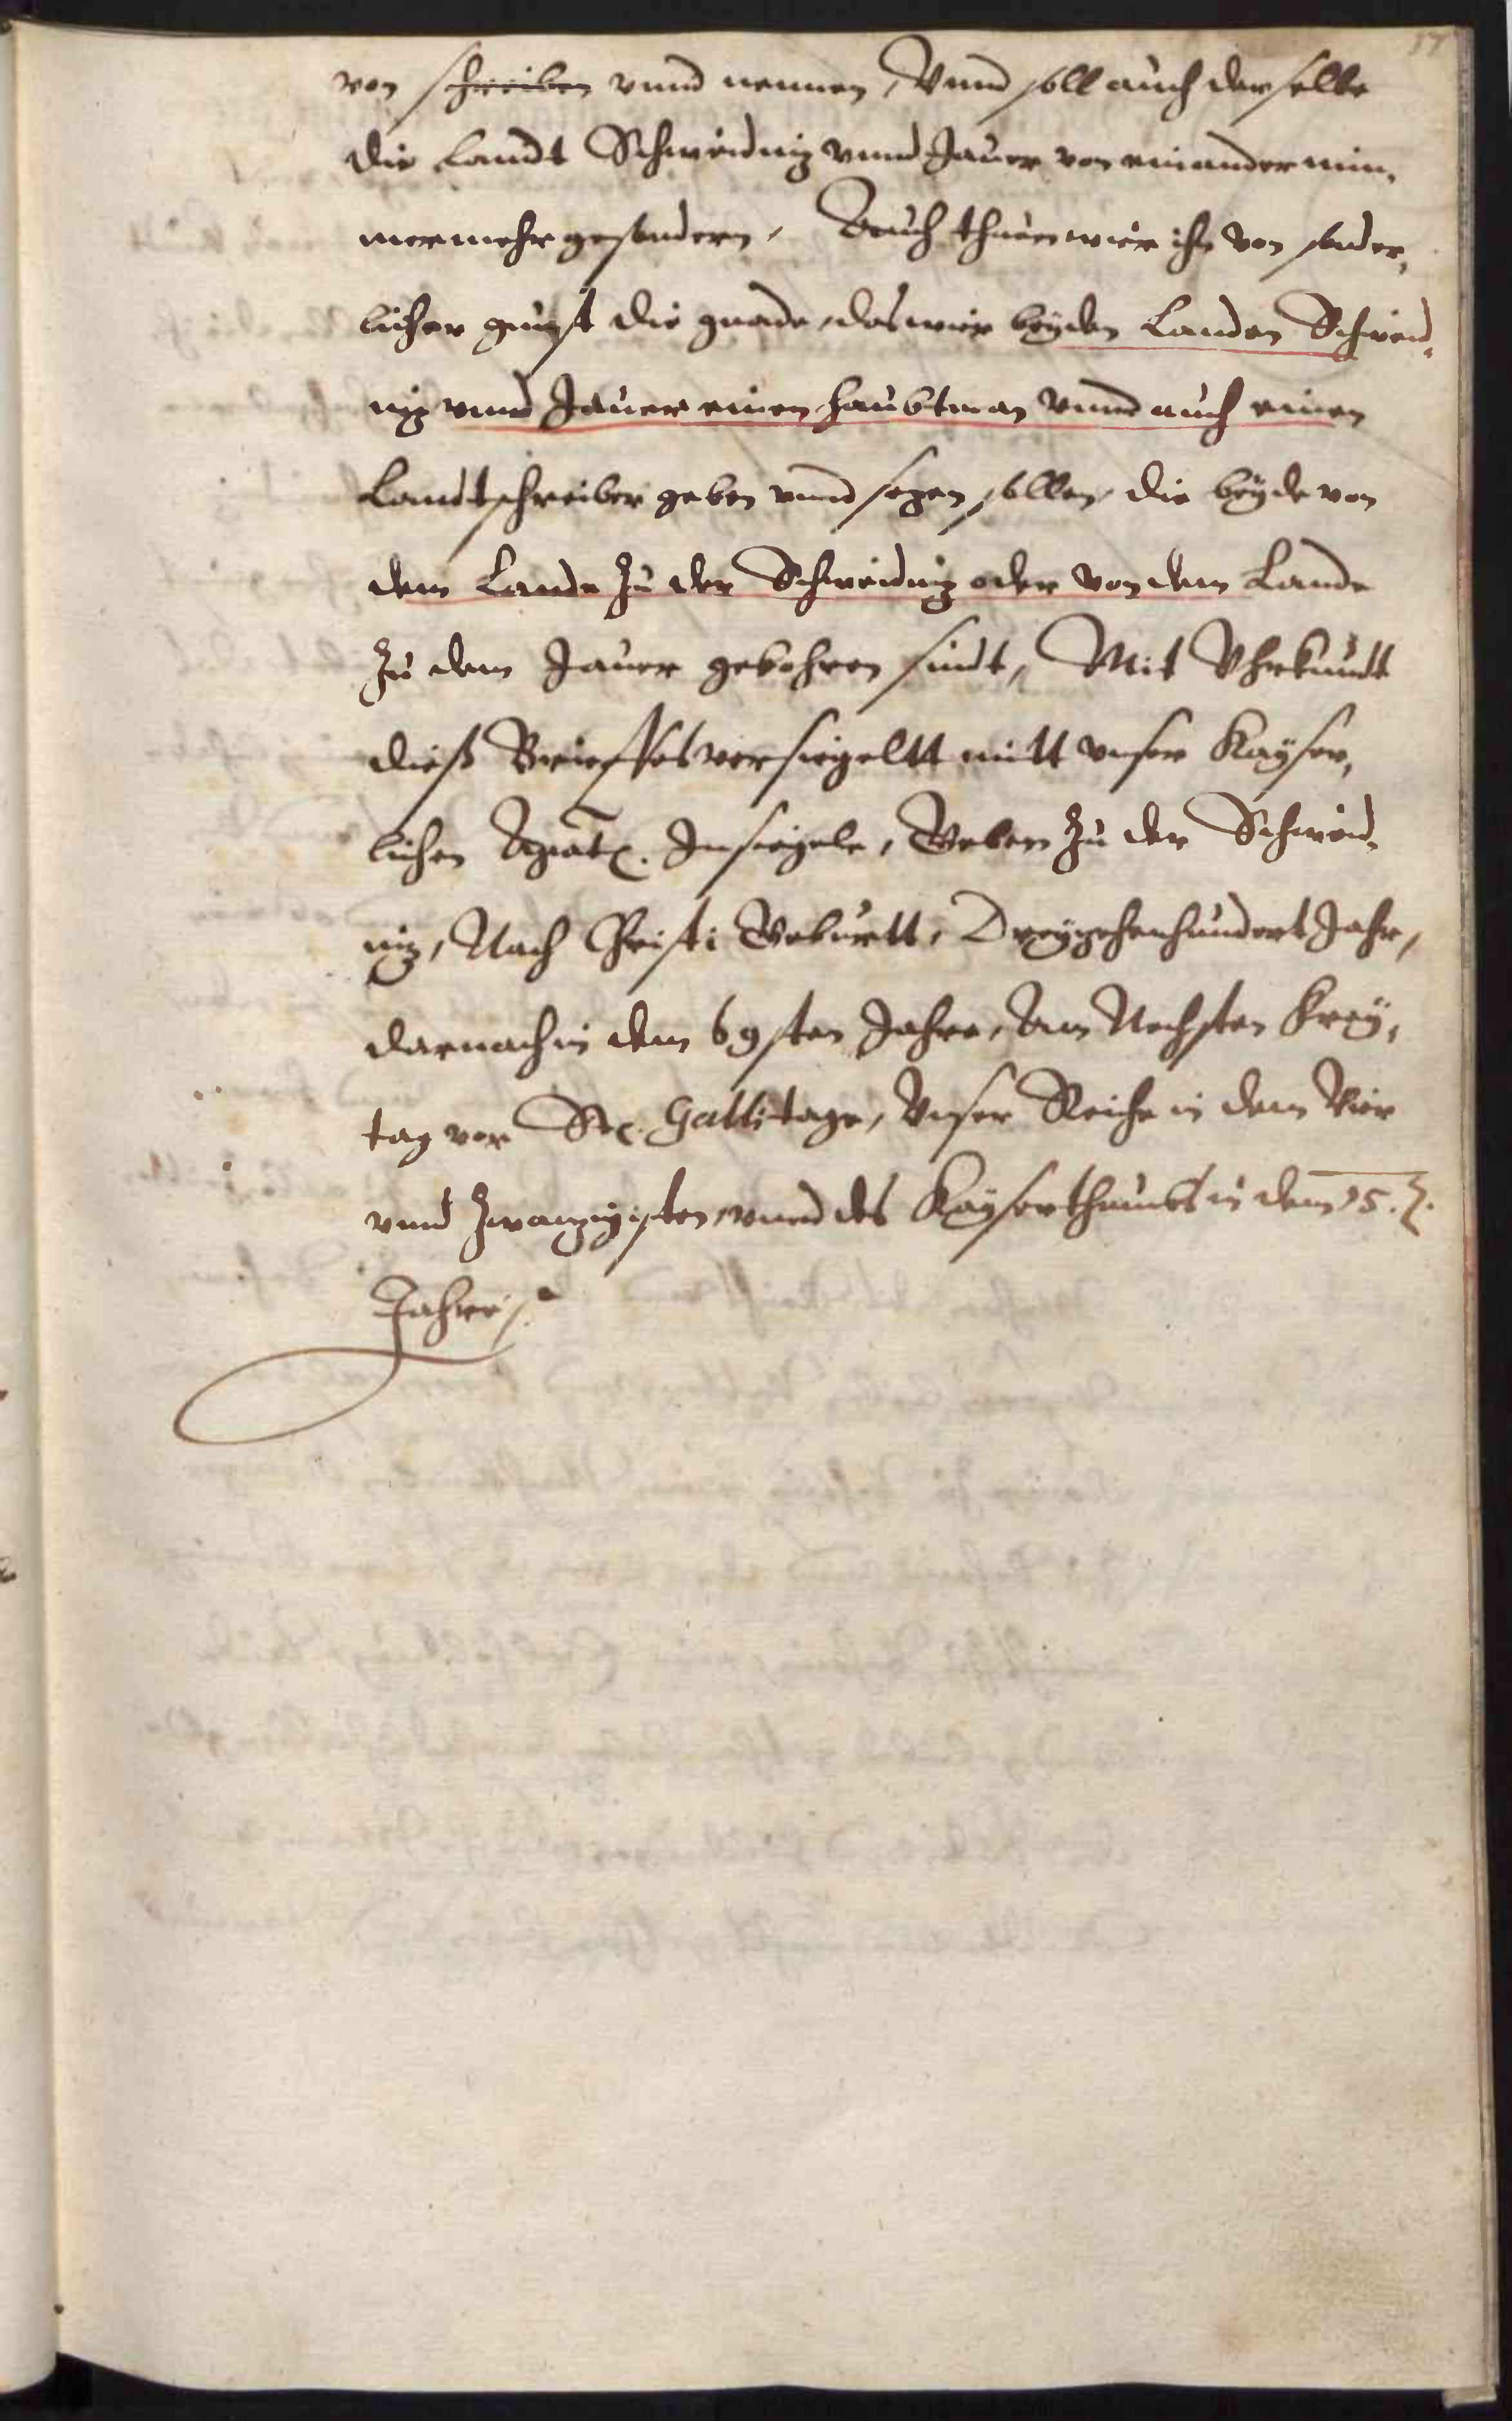 17
von schreiben vnnd nennen, Vnnd soll auch derselbe
die Landt Schweidniz vnnd Jauer von einander nim,
mermehr gesondern, Auch thuen wier ihn von sonder,
licher gunst die gnade, das wier beyden Landen Schweid,
niz vnnd Jauer einen Haubtman vnnd auch einen
Landtschreiber geben vnnd sezen sollen, die beyde von
dem Lande zu der Schweidniz oder von dem Lande
zu dem Jauer gebohren sindt, Mit Vhrkundt
dieß Brieffes versiegeltt mitt vnser Kayser,
lichen Insiegele, Geben zu der Schweid,
niz, Nach Christi Geburtt, Dreyzehenhundert Jahr,
darnach in dem 69sten Jahre, Am Nechsten Frey,
tag vor St. Gallitage, Vnser Reiche in dem Vier
vnnd Zwanzigisten, vnnd des Kayserthumbs in dem 15.
Jahre